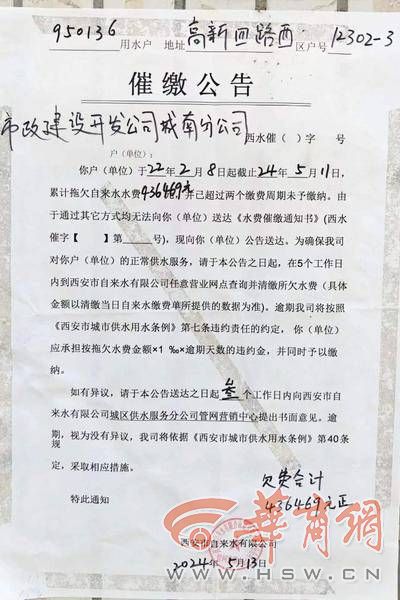 950136 用水户 地址 高新四路西 区户号 12302-3
催缴公告
市政建设开发公司城南分公司 西水催( )字 号
户(单位):
你户(单位)于22年2月8日起截止24年5月11日,
累计拖欠自来水水费436469元并已超过两个缴费周期未予缴纳。由
于通过其它方式均无法向你(单位)送达《水费催缴通知书》(西水
催字【 】第 号),现向你(单位)公告送达。为确保我司
对你户(单位)的正常供水服务,请于本公告之日起,在5个工作日
内到西安市自来水有限公司任意营业网点查询并清缴所欠水费(具体
金额以清缴当日自来水缴费单所提供的数据为准)。逾期我司将按照
《西安市城市供水用水条例》第七条违约责任的约定,你(单位)
应承担按拖欠水费金额×1‰×逾期天数的违约金,并同时予以缴
纳。
如有异议,请于本公告送达之日起叁个工作日内向西安市自
来水有限公司城区供水服务分公司管网营销中心提出书面意见。逾
期,视为没有异议,我司将依据《西安市城市供水用水条例》第40条
规定,采取相应措施。
欠费合计
特此通知
436469元正
华商网
西安市自来水有限公司
2024年5月13日
WWW.HSW.CN